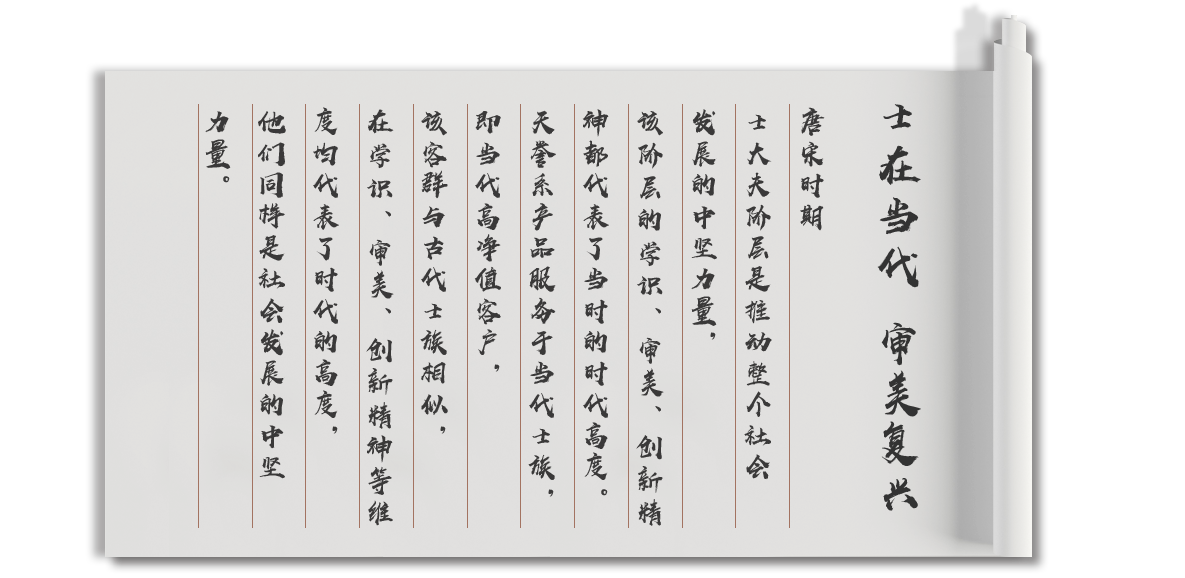 士在当代 审美复兴
唐宋时期
士大夫阶层是推动整个社会
发展的中坚力量，
该阶层的学识、审美、创新精
神都代表了当时的时代高度。
天誉系产品服务于当代士族，
即当代高净值客户，
该客群与古代士族相似，
在学识、审美、创新精神等维
度均代表了时代的高度，
他们同样是社会发展的中坚
力量。